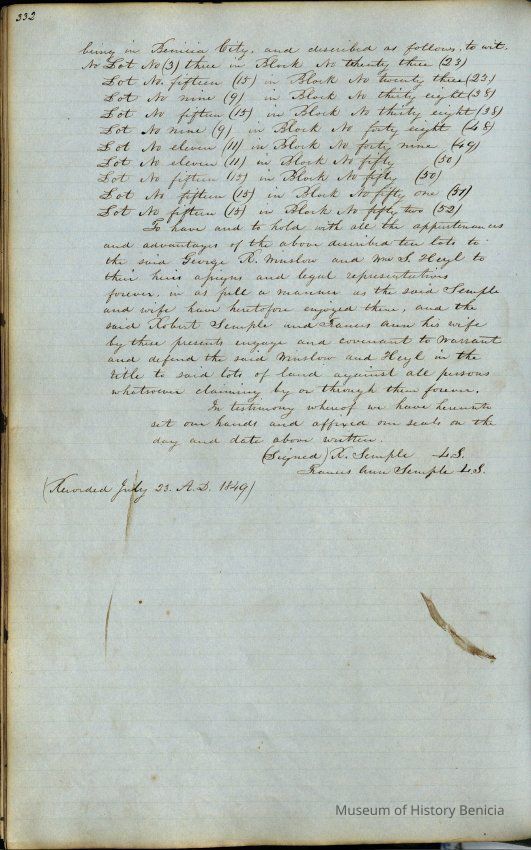 332
being in Benicia City, and described as follows, to wit.
No Lot No (3) three in Block No twenty three (23)
Lot No. fifteen (15) in Block No twenty three (23)
Lot No nine (9) in Block No thirty eight (38)
Lot No fifteen (15) in Block No thirty eight (38)
Lot No nine (9) in Block No forty eight (48)
Lot No eleven (11) in Block No forty nine (49)
Lot No eleven (11) in Block No fifty (50)
Lot No fifteen 15) in Block No fifty (50)
Lot No fifteen (15) in Block No fifty one (51)
Lot No fifteen (15) in Block No fifty two (52)
To have and to hold with all the appurtenances
and advantages of the above described ten lots to
the said George R. Winslow and Wm S. Heyl to
their heirs assigns and legal representatives
forever, in as full a manner as the said Semple
and wife have heretofore enjoyed them, and the
said Robert Semple and Frances Ann his wife
by these presents engage and covenant to Warrant
and defend the said Winslow and Heyl in the
title to said lots of land against all persons
whatsoever claiming by or through them forever.
In testimony whereof we have hereunto
set our hands and affixed our seals on the
day and date above written.
(Signed) R. Semple L.S.
Frances Ann Semple L.S.
(Recorded July 23. A.D. 1849)
Museum of History Benicia